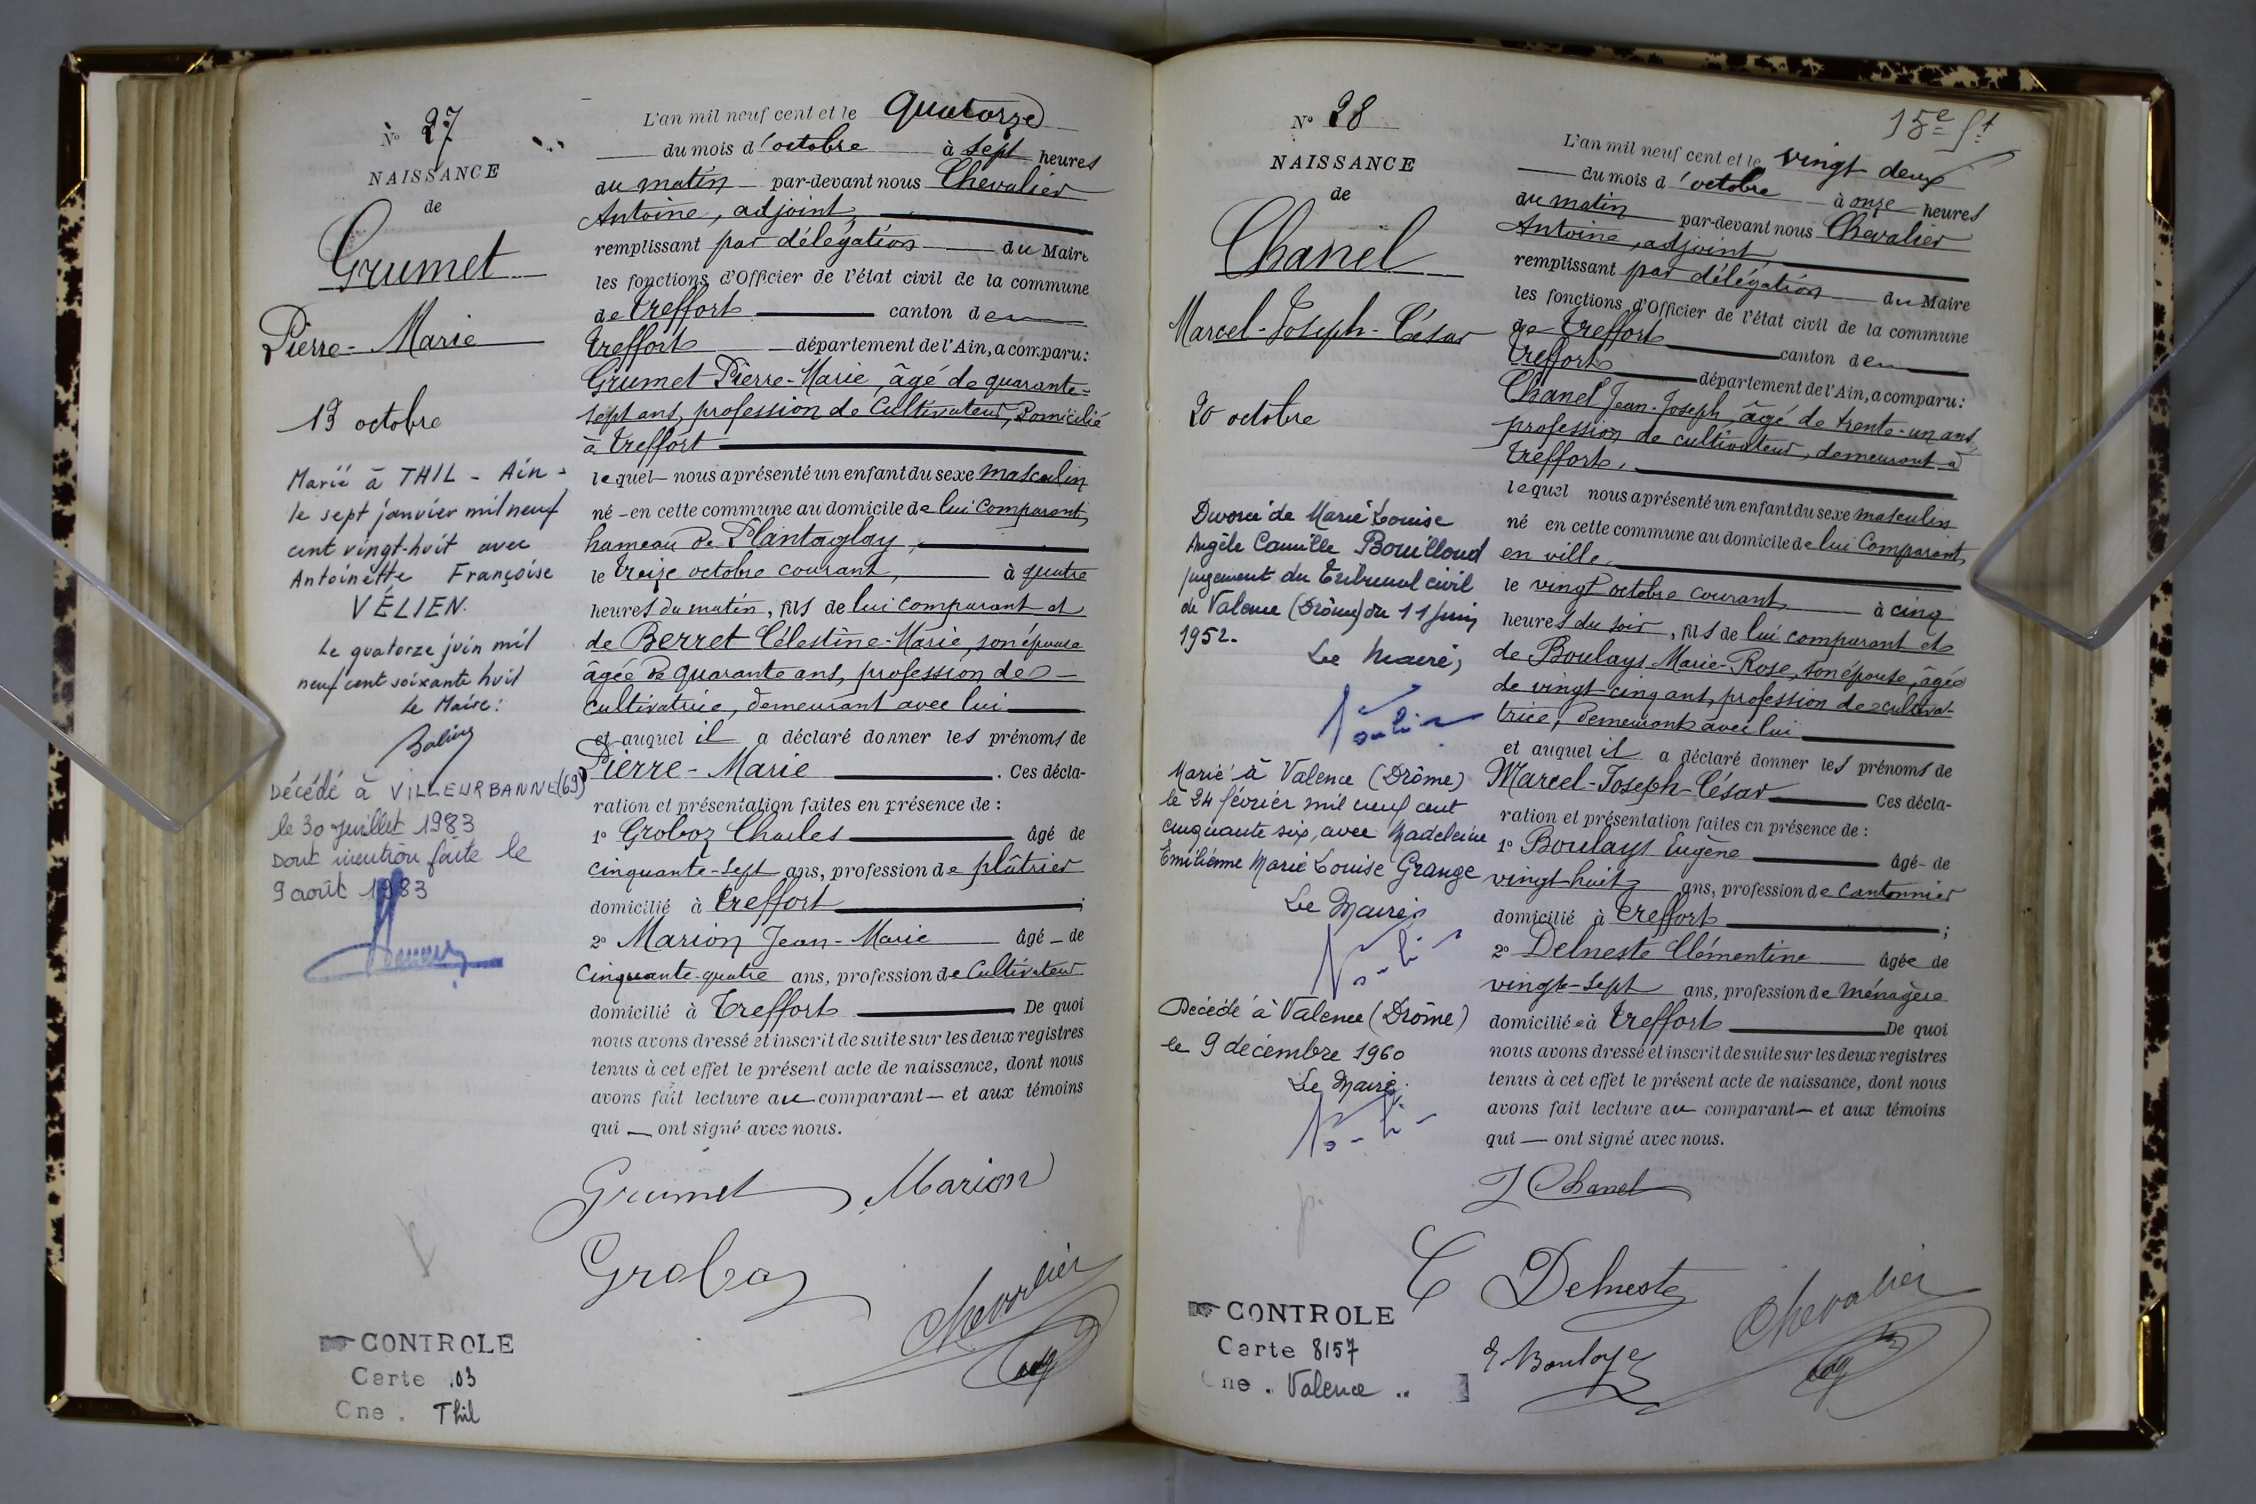 N° 27
NAISSANCE
de
Grumet
Pierre-Marie
13 octobre
Marié à THIL - Ain -
le sept janvier mil neuf
cent vingt-huit avec
Antoinette Françoise
VÉLIEN.
Le quatorze juin mil
neuf cent soixante huit
Le Maire:
Décédé à VILLEURBANNE (69)
le 30 juillet 1983
Dont mention faite le
9 août 1983
CONTROLE
Carte 103
Cne. Thil
L'an mil neuf cent et le quatorze
du mois d'octobre à sept heures
du matin par-devant nous Chevalier
Antoine, adjoint,
remplissant par délégation du Maire
les fonctions d'Officier de l'état civil de la commune
de Treffort canton de
Treffort département de l'Ain, a comparu:
Grumet Pierre-Marie, âgé de quarante-
sept ans, profession de Cultivateur, Domicilié
à Treffort
lequel nous a présenté un enfant du sexe masculin
né en cette commune au domicile de lui Comparant,
hameau de Plantaglay,
le treize octobre courant, à quatre
heures du matin, fils de lui comparant et
de Berret Célestine-Marie, son épouse
âgée de quarante ans, profession de
cultivatrice, demeurant avec lui
et auquel il a déclaré donner les prénoms de
Pierre-Marie. Ces décla-
ration et présentation faites en présence de:
1° Groboz Charles âgé de
cinquante-sept ans, profession de plâtrier
domicilié à Treffort;
2° Marion Jean-Marie âgé de
Cinquante-quatre ans, profession de Cultivateur
domicilié à Treffort De quoi
nous avons dressé et inscrit de suite sur les deux registres
tenus à cet effet le présent acte de naissance, dont nous
avons fait lecture au comparant et aux témoins
qui ont signé avec nous.
Grumet Marion
Groboz
Chevalier
15e ft
N° 28
NAISSANCE
de
Chanel
Marcel-Joseph-César
20 octobre
Divorcé de Marie Louise
Angèle Camille Bouilloud
jugement du Tribunal civil
de Valence (Drôme) du 11 juin
1952.
Le Maire,
Marié à Valence (Drôme)
le 24 février mil neuf cent
cinquante six, avec Madeleine
Emilienne Marie Louise Grange
Le Maire,
Décédé à Valence (Drôme)
le 9 décembre 1960
Le Maire.
CONTROLE
Carte 8157
Cne. Valence
L'an mil neuf cent et le vingt deux
du mois d'octobre à onze heures
du matin par-devant nous Chevalier
Antoine, adjoint
remplissant par délégation du Maire
les fonctions d'Officier de l'état civil de la commune
de Treffort canton de
Treffort département de l'Ain, a comparu:
Chanel Jean-Joseph âgé de trente-un ans,
profession de cultivateur, demeurant à
Treffort,
lequel nous a présenté un enfant du sexe masculin
né en cette commune au domicile de lui Comparant,
en ville,
le vingt octobre courant à cinq
heures du soir, fils de lui comparant et
de Boulays Marie-Rose, son épouse, âgée
de vingt-cinq ans, profession de cultiva-
trice, demeurant avec lui
et auquel il a déclaré donner les prénoms de
Marcel-Joseph-César Ces décla-
ration et présentation faites en présence de:
1° Boulays Eugène âgé de
vingt-huit ans, profession de Cantonnier
domicilié à Treffort;
2° Delneste Clémentine âgée de
vingt-sept ans, profession de Ménagère
domiciliée à Treffort De quoi
nous avons dressé et inscrit de suite sur les deux registres
tenus à cet effet le présent acte de naissance, dont nous
avons fait lecture au comparant et aux témoins
qui ont signé avec nous.
J Chanel
C Delneste
E. Boulays
Chevalier